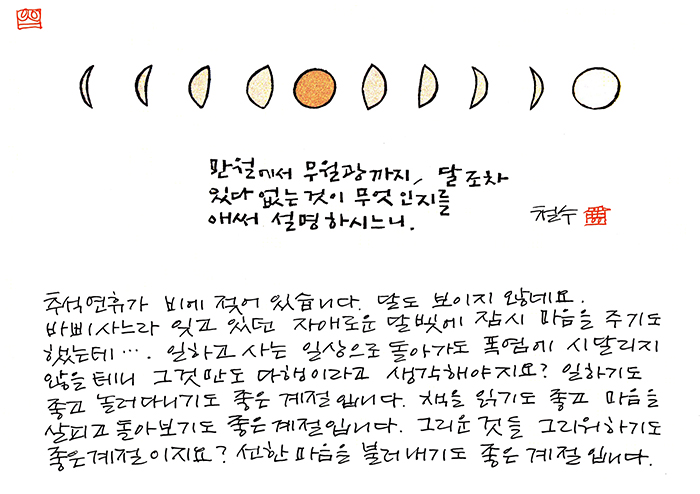 만월에서 무월광까지, 달조차
있다 없는 것이 무엇인지를
애써 설명하시느니.
철수
추석연휴가 비에 젖어 있습니다. 달도 보이지 않네요.
바삐사느라 잊고 있던 자애로운 달빛에 잠시 마음을 주기도
했는데…. 일하고 사는 일상으로 돌아가도 폭염에 시달리지
않을테니 그것만도 다행이라고 생각해야지요? 일하기도
좋고 놀러다니기도 좋은 계절입니다. 책을 읽기도 좋고 마음을
살피고 돌아보기도 좋은계절입니다. 그리운 것들 그리워하기도
좋은계절이지요? 선한마음을 불러내기도 좋은 계절입니다.